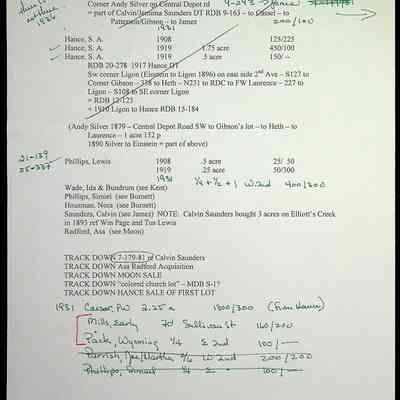 Corner Andy Silver on Central Depot rd
= part of Calvin/Jemima Saunders DT RDB 9-163 – to Cassel – to
Patterson/Gibson – to James 200/100
1931
Hance, S. A. 1908 125/225
Hance, S. A. 1919 1.75 acre 450/100
Hance, S. A. 1919 .5 acre 150/--
RDB 20-278 1917 Hance DT
Sw corner Ligon (Einstein to Ligon 1896) on east side 2nd Ave – S127 to
Corner Gibson – 338 to Heth – N231 to RDC to FW Laurence – 227 to
Ligon – S108 to SE corner Ligon
= RDB 12-123
= 1910 Ligon to Hance RDB 15-184
(Andy Silver 1879 – Central Depot Road SW to Gibson's lot – to Heth – to
Laurence – 1 acre 152 p
1890 Silver to Einstein = part of above)
21-139
25-337
Phillips, Lewis 1908 .5 acre 25/ 50
1919 .25 acre 50/300
1931 1/4 + 1/2 + 1 W. 2nd 400/300
Wade, Ida & Bundrum (see Kent)
Phillips, Simiel (see Burnett)
Houseman, Nora (see Burnett)
Saunders, Calvin (see James) NOTE: Calvin Saunders bought 3 acres on Elliott's Creek
in 1893 ref Win Page and Tus Lewis
Radford, Asa (see Moon)
TRACK DOWN 7-179-81 of Calvin Saunders
TRACK DOWN Asa Radford Acquisition
TRACK DOWN MOON SALE
TRACK DOWN "colored church lot" – MDB S-1?
TRACK DOWN HANCE SALE OF FIRST LOT
1931 Caesar, PW 2.25 a 1800/300 (From Hance)
Mills, Early Sullivan St 160/200
Pack, Wyoming 1/4 E 2nd 100/—
Parrish, W 2nd 200/200
Phillips, 1/4 100/—